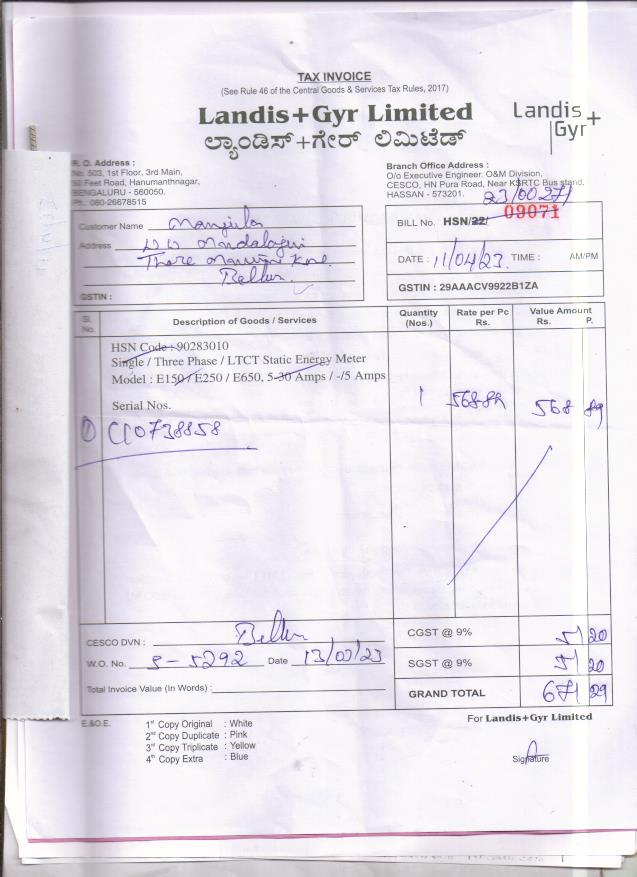 TAX INVOICE
(See Rule 46 of the Central Goods & Services Tax Rules, 2017)
Landis+Gyr Limited
ಲ್ಯಾಂಡಿಸ್+ಗೇರ್ ಲಿಮಿಟೆಡ್
Landis+
Gyr
R. O. Address :
No. 503, 1st Floor, 3rd Main,
Feet Road, Hanumanthnagar,
BENGALURU - 560050.
Ph.: 080-26678515
Branch Office Address :
O/o Executive Engineer, O&M Division,
CESCO, HN Pura Road, Near KSRTC Bus stand,
HASSAN - 573201.
23/00271
Customer Name Manjula
Address
Bellur
GSTIN :
BILL No. HSN/22/ 09071
DATE : 11/04/23. TIME : AM/PM
GSTIN : 29AAACV9922B1ZA
Sl. No. Description of Goods / Services Quantity (Nos.) Rate per Pc Rs. Value Amount Rs. P.
HSN Code : 90283010
Single / Three Phase / LTCT Static Energy Meter
Model : E150 / E250 / E650, 5-30 Amps / -/5 Amps
1 568-89 568 89
Serial Nos.
① CC0738858
CESCO DVN : Bellur
W.O. No. S-5292 Date 13/03/23
Total Invoice Value (In Words) :
CGST @ 9% 51 20
SGST @ 9% 51 20
GRAND TOTAL 671 29
E.&O.E.
1st Copy Original : White
2nd Copy Duplicate : Pink
3rd Copy Triplicate : Yellow
4th Copy Extra : Blue
For Landis+Gyr Limited
Signature